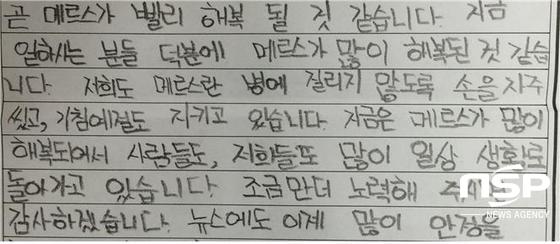 곧 메르스가 빨리 해복 될 것 같습니다. 지금
일하시는 분들 덕분에 메르스가 많이 해복된 것 같습
니다. 저희도 메르스란 병에 걸리지 않도록 손을 자주
씻고, 기침예절도 지키고 있습니다. 지금은 메르스가 많이
해복되에서 사람들도, 저희들또 많이 일상 생활로
돌아가고 있습니다. 조금만더 노력해 주시면
감사하겠습니다. 뉴스에도 이제 많이 안정을
NSP
NEWS AGENCY